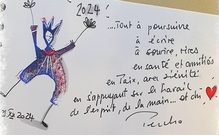 2024!
...Tout à poursuivre
à écrire
à sourire, rires
en santé et amitiés
en Paix, avec sérénité
en s'appuyant sur le travail
de l'esprit, de la main... et du